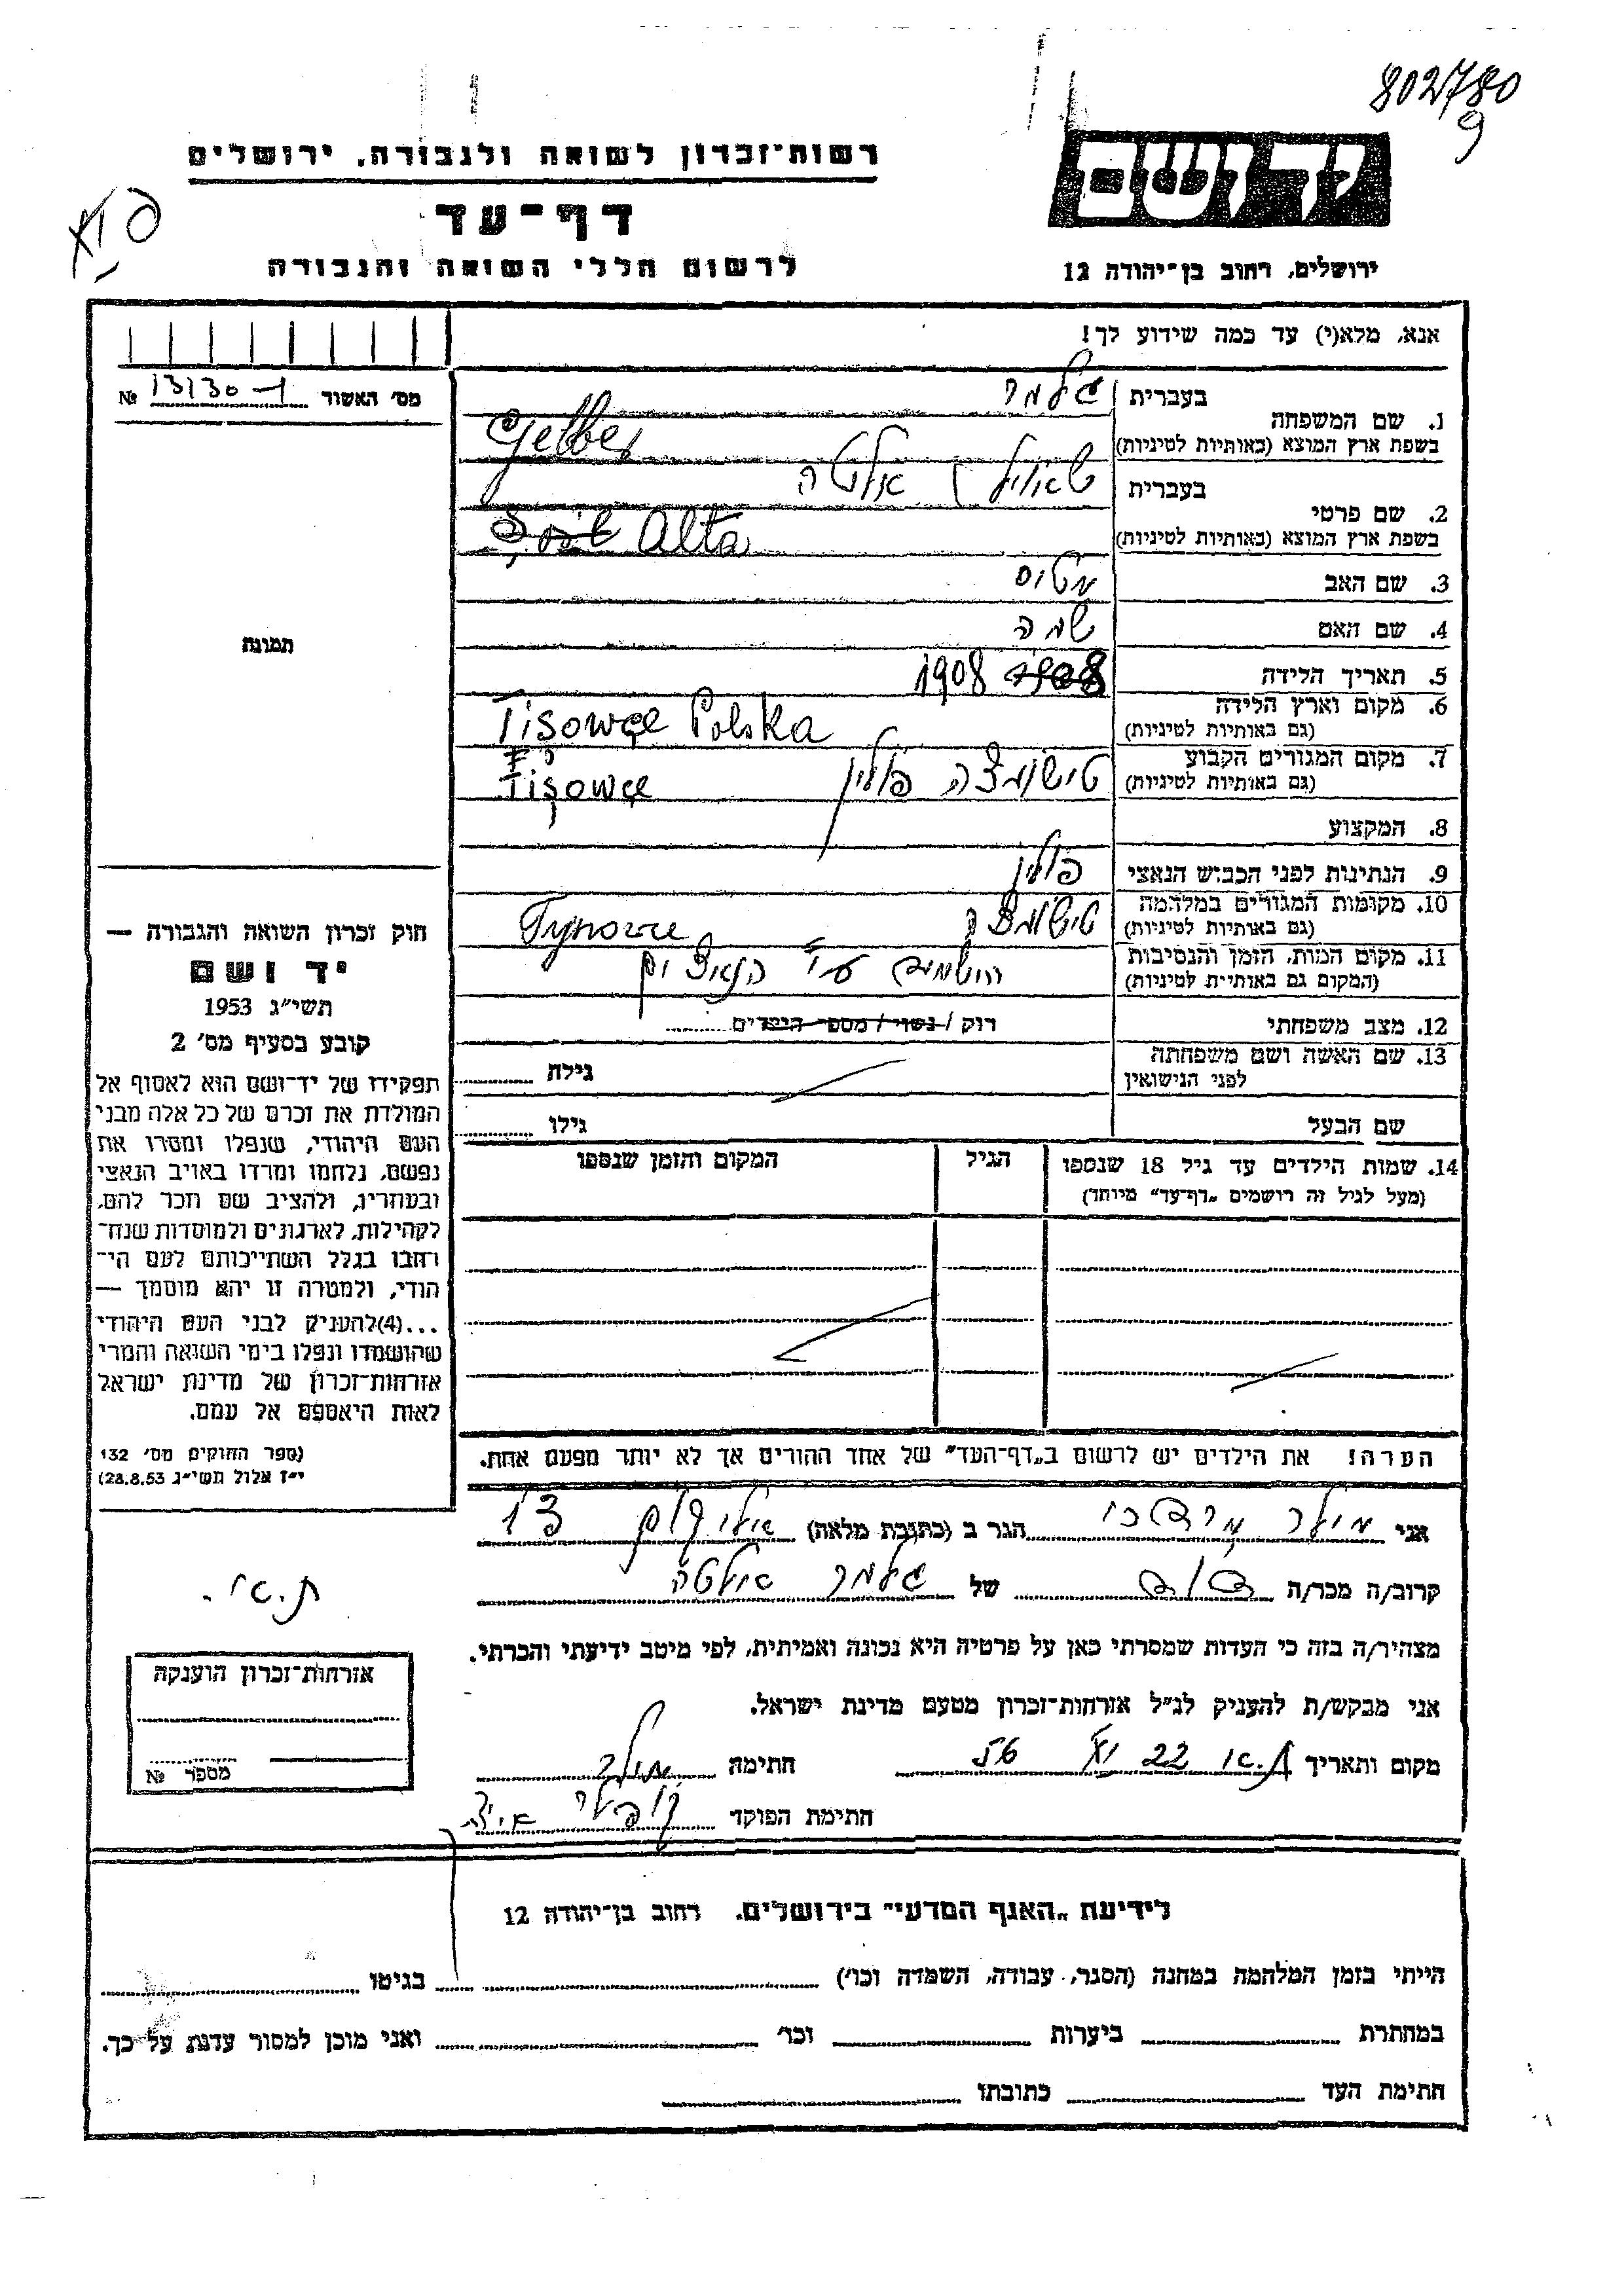 802780
9
רשות־זכרון לשואה ולגבורה, ירושלים
יד ושם
דף־עד
לרשום חללי השואה והגבורה
ירושלים, רחוב בן־יהודה 12
אנא, מלא(י) עד כמה שידוע לך!
מס' האשור № 13130-1
1. שם המשפחה בעברית גלבר
בשפת ארץ המוצא (באותיות לטיניות) Gelber
2. שם פרטי בעברית אלטה
בשפת ארץ המוצא (באותיות לטיניות) Alta
3. שם האב
4. שם האם
5. תאריך הלידה 1908
6. מקום וארץ הלידה
(גם באותיות לטיניות) Tisowce Polska
7. מקום המגורים הקבוע טישובצה פולין
(גם באותיות לטיניות) Tisowce
8. המקצוע
9. הנתינות לפני הכבוש הנאצי פולין
10. מקומות המגורים במלחמה טישובצה
(גם באותיות לטיניות)
11. מקום המות, הזמן והנסיבות ע"י הנאצים
(המקום גם באותיות לטיניות)
12. מצב משפחתי רוק / נשוי / מספר הילדים
13. שם האשה ושם משפחתה
לפני הנישואין גילה
שם הבעל גילו
14. שמות הילדים עד גיל 18 שנספו הגיל המקום והזמן שנספו
(מעל לגיל זה רושמים „דף־עד" מיוחד)
הערה! את הילדים יש לרשום ב„דף־העד" של אחד ההורים אך לא יותר מפעם אחת.
תמונה
חוק זכרון השואה והגבורה —
יד ושם
תשי"ג 1953
קובע בסעיף מס' 2
תפקידו של יד־ושם הוא לאסוף אל
המולדת את זכרם של כל אלה מבני
העם היהודי, שנפלו ומסרו את
נפשם, נלחמו ומרדו באויב הנאצי
ובעוזריו, ולהציב שם וזכר להם,
לקהילות, לארגונים ולמוסדות שנח־
רבו בגלל השתייכותם לעם הי־
הודי, ולמטרה זו יהא מוסמך —
...(4)להעניק לבני העם היהודי
שהושמדו ונפלו בימי השואה והמרי
אזרחות־זכרון של מדינת ישראל
לאות היאספם אל עמם.
(ספר החוקים מס' 132
י"ז אלול תשי"ג 28.8.53)
אני מרדכי הגר ב (כתובת מלאה) 13
קרוב/ה מכר/ה דוד של גלבר אלטה
מצהיר/ה בזה כי העדות שמסרתי כאן על פרטיה היא נכונה ואמיתית, לפי מיטב ידיעתי והכרתי.
אני מבקש/ת להעניק לנ"ל אזרחות־זכרון מטעם מדינת ישראל.
מקום ותאריך ת.א. 22 56 חתימה
חתימת הפוקד
ת.א.
אזרחות־זכרון הוענקה
מספר №
לידיעת „האגף המדעי" בירושלים, רחוב בן־יהודה 12
הייתי בזמן המלחמה במחנה (הסגר, עבודה, השמדה וכו') בגיטו
במחתרת ביערות וכו' ואני מוכן למסור עדות על כך.
חתימת העד כתובתו